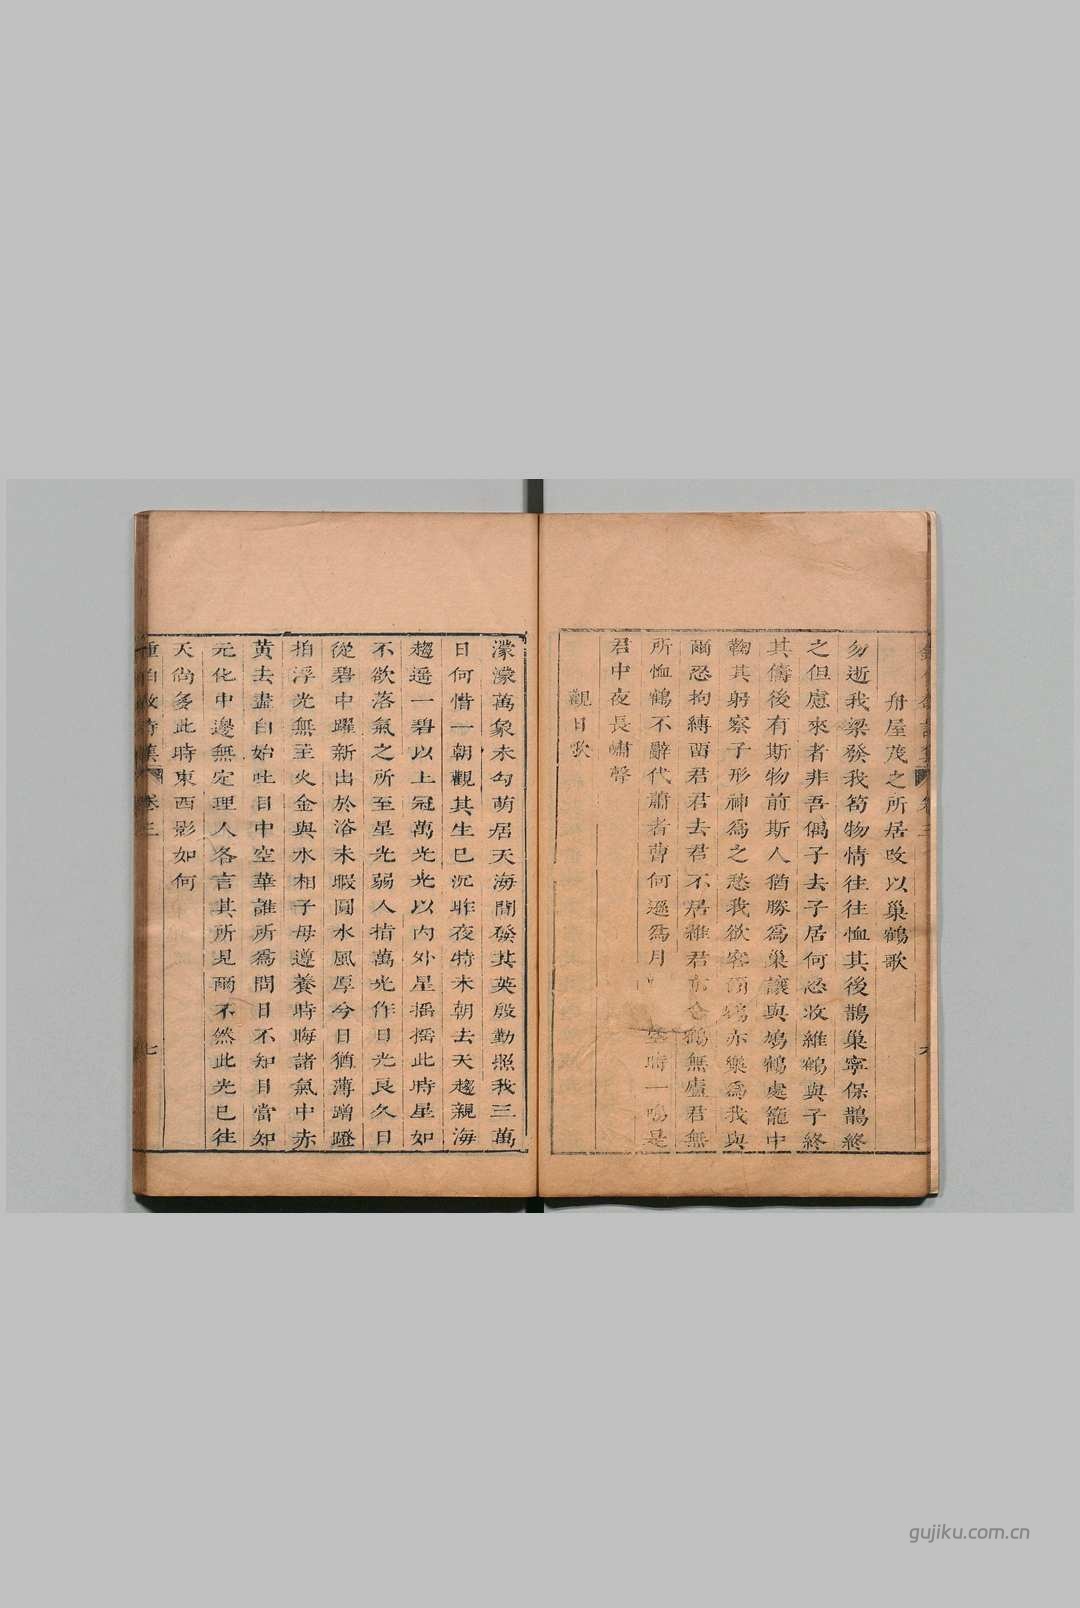 舟屋茂之所居改以巢鶴歌
勿逝我梁發我笱物情往往恤其後鵲巢寧保鵲終
之但慮來者非吾偶子去子居何恐收維鶴與子終
其儔後有斯物前斯人猶勝爲巢讓與鳩鶴處籠中
鞠其躬察子形神爲之愁我欲容爾鶴亦樂爲我與
爾恐拘縛留君君去君不居維君亦舍鶴無廬君無
所恤鶴不辭代蕭者曹何遜爲月 時一鳴是
君中夜長嘯聲
觀日歌
濛濛萬象未勾萌居天海間發其英殷勤照我三萬
日何惜一朝觀其生已沉昨夜特未朝去天趨親海
趨遥一碧以上冠萬光光以内外星搖搖此時星如
不欲落氣之所至星光弱人揹萬光作日光艮久日
從碧中躍新出於浴未暇圓水風厚今日猶薄蹭蹬
拍浮光無至火金與水相子母遵養時晦諸氣中赤
黄去盡白始吐目中空華誰所爲問日不知目當知
元化中邊無定理人各言其所見爾不然此光已往
天尙多此時東西影如何
卷三
七
gujiku.com.cn